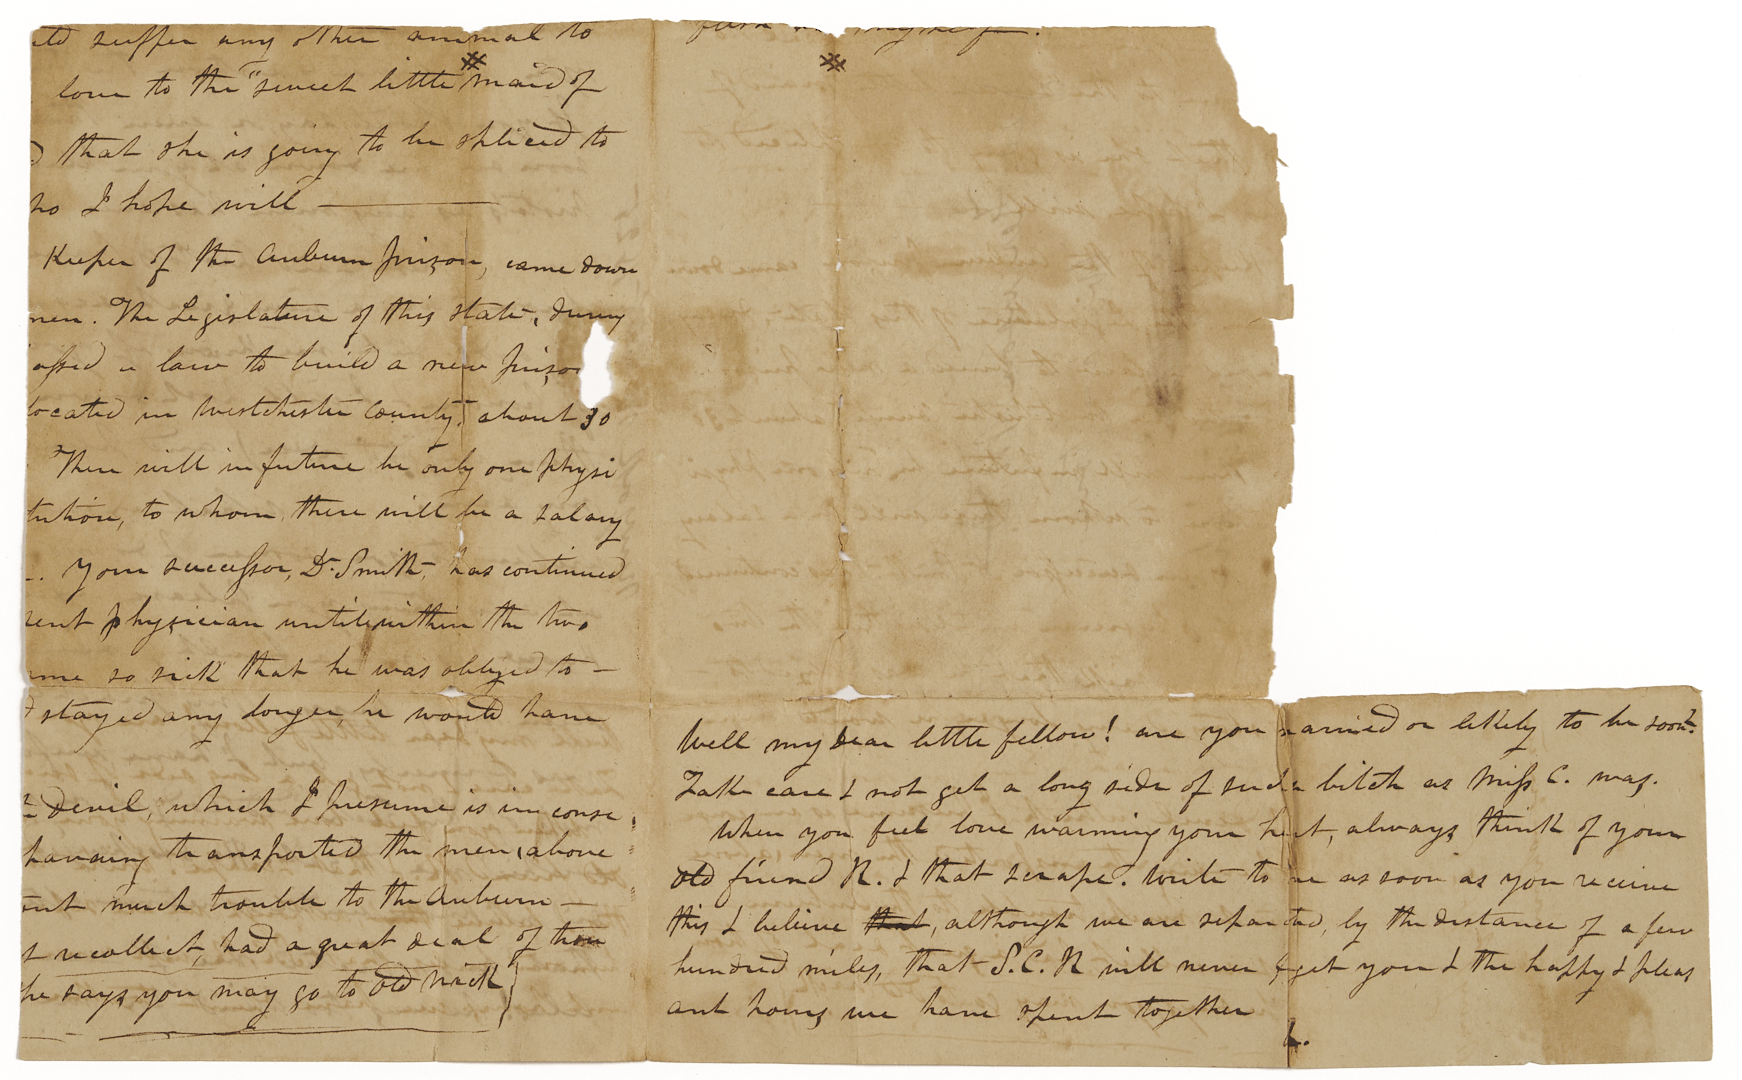 suffer any other animal to
love to the "sweet little maid of
that she is going to be spliced to
so I hope will
Keeper of the Auburn prison, came down
men. The Legislature of this state, during
assed a law to build a new prison
located in Westchester County, about 30
There will in future be only one physi
tution, to whom there will be a salary
. Your successor, Dr. Smith, has continued
dent physician until within the two
ame so sick that he was obliged to —
stayed any longer, he would have
Devil, which I presume is in conse
havaing transported the men, above
out much trouble to the Auburn —
I recollect, had a great deal of them
he says you may go to old Nick
myself.
Well my dear little fellow! are you married or likely to be soon?
Take care & not get a long side of such a bitch as Miss C. was.
When you feel love warming your heart, always think of your
old friend R. & that scrape. Write to me as soon as you receive
this & believe that, although we are separated, by the distance of a few
hundred miles, that S.C.R will never forget you & the happy & pleas
ant hours we have spent together